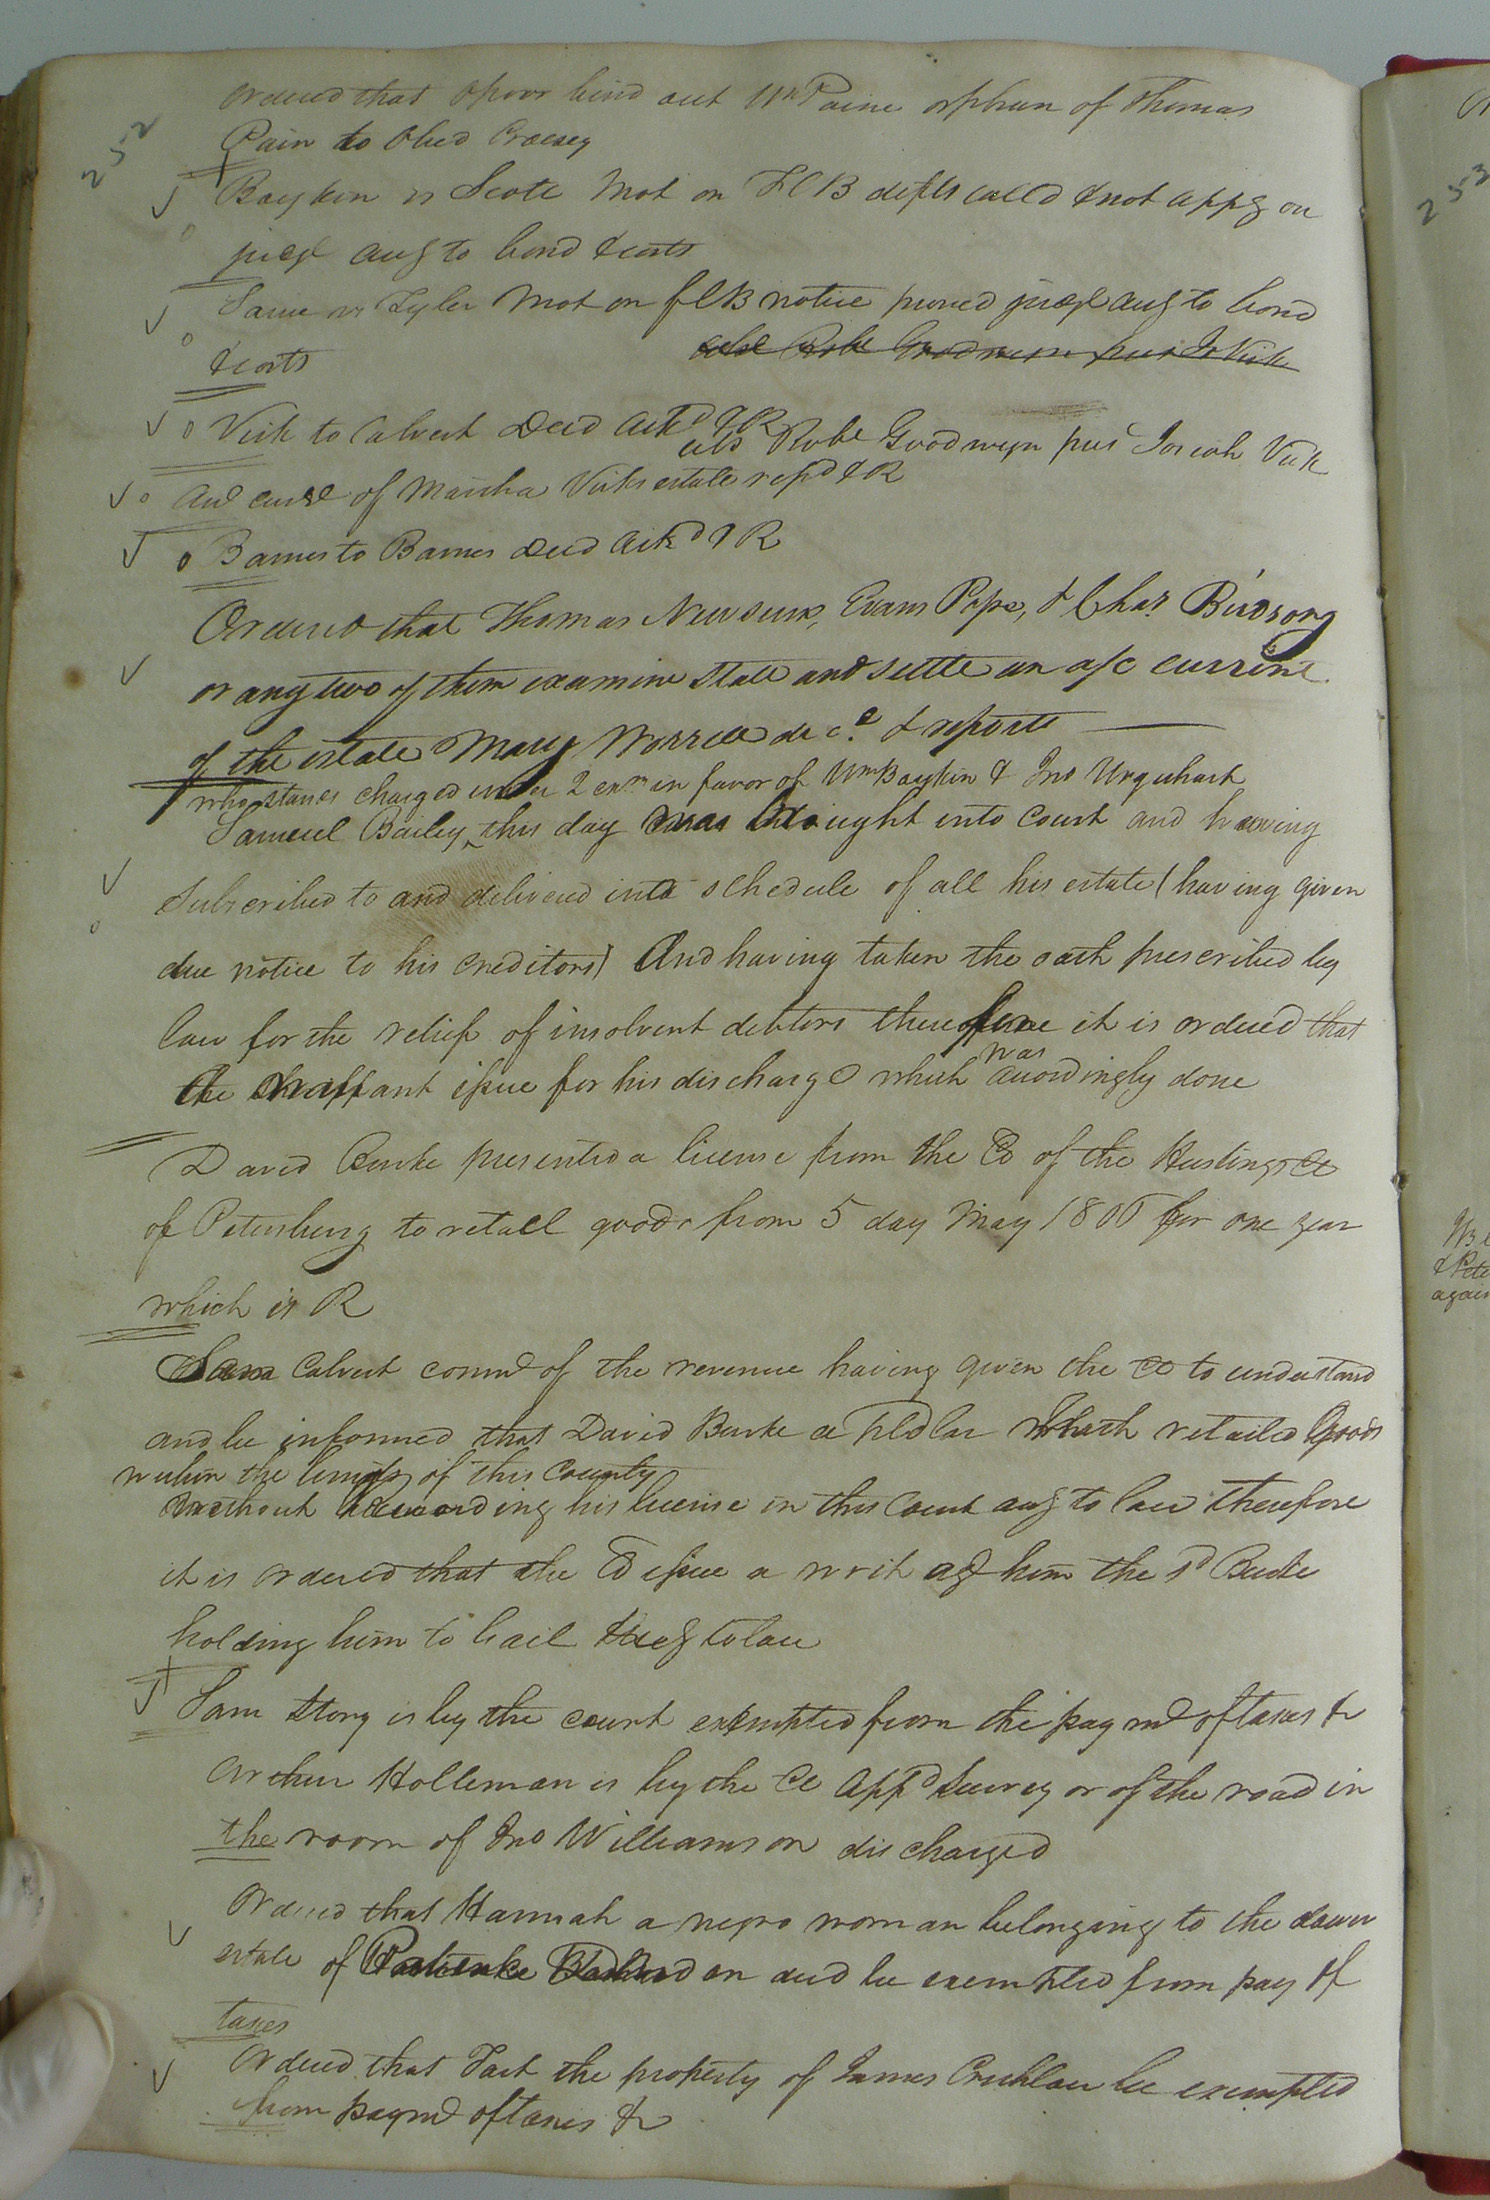 252
Ordered that Opoor bind out Wm Paine orphan of Thomas
Pain to Obed
Boykin vs Scott Mot on FCB defts called & not appg on
judgt accg to bond & costs
Same vs Tyler Mot on fCB notice proved judgt accg to bond
& costs
Robt Goodwyn pus Jo Vick
Vick to Calvert Deed Ackd & R
als Robt Goodwyn pus Josiah Vick
Act curt of Martha Vicks estate repd & R
Barnes to Barnes Deed Ackd & R
Ordered that Thomas Newsum, Evans Pope, & Chas. Birdsong
or any two of them examine state and settle an a/c current
of the estate Mary Worrell decd. & reporte
who stands charged under 2 exns in favor of Wm Boykin & Jno Urquhart
Samuel Bailey this day was brought into Court and having
Subscribed to and delivered into schedule of all his estate (having given
due notice to his creditors) And having taken the oath prescribed by
law for the relief of insolvent debtors therefore it is ordered that
was
the warrant issue for his discharge which accordingly done
David Burke presented a license from the Co of the Hustings Ct
of Petersburg to retail goods from 5 day May 1806 for one year
which is R
Sam Calvert commr of the revenue having given the Ct to understand
and be informed that David Burke a Pedlar hath retailed Goods
within the limits of this County
without recording his license in this Court accg to law therefore
it is ordered that the Co issue a writ agt him the sd Burke
holding him to bail accg to law
Sam Story is by the court exempted from the paymt of taxes &
Arthur Holleman is by the Ct Appd Surveyor of the road in
the room of Jno Williamson discharged
Ordered that Hannah a negro woman belonging to the dower
estate of decd be exempted from pay of
taxes
Ordered that the property of James Crichlow be exempted
from paymt of taxes &
253
again